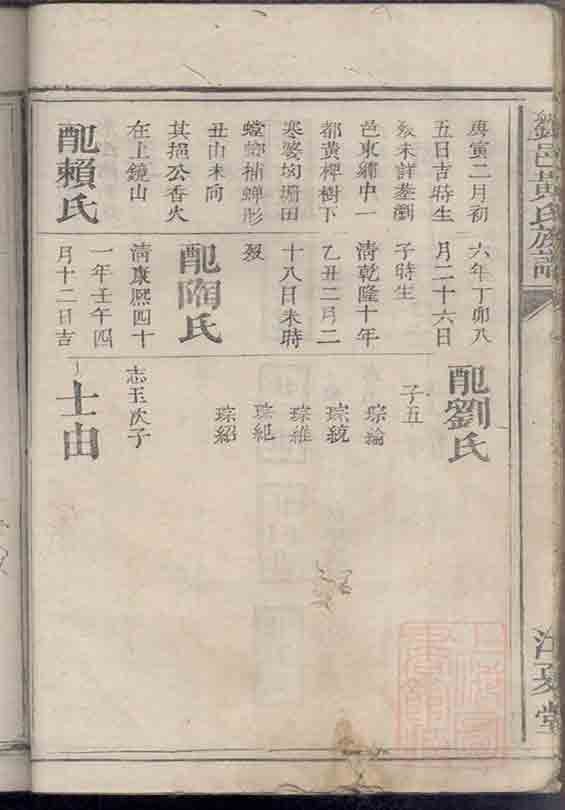 劉邑黃氏族譜
江夏堂
庚寅二月初
五日吉時生
歿未詳塟瀏
邑東鄉中一
都黃稗樹下
寒婆坳珊田
螳螂捕蟬形
丑山未向
其挹公香火
在上鏡山
配賴氏
六年丁卯八
月二十六日
子時生
清乾隆十年
乙丑二月二
十八日未時
歿
配陶氏
清康熙四十
一年壬午四
月十二日吉
配劉氏
子五
琮綸
琮統
琮維
琮紀
琮紹
志玉次子
士由